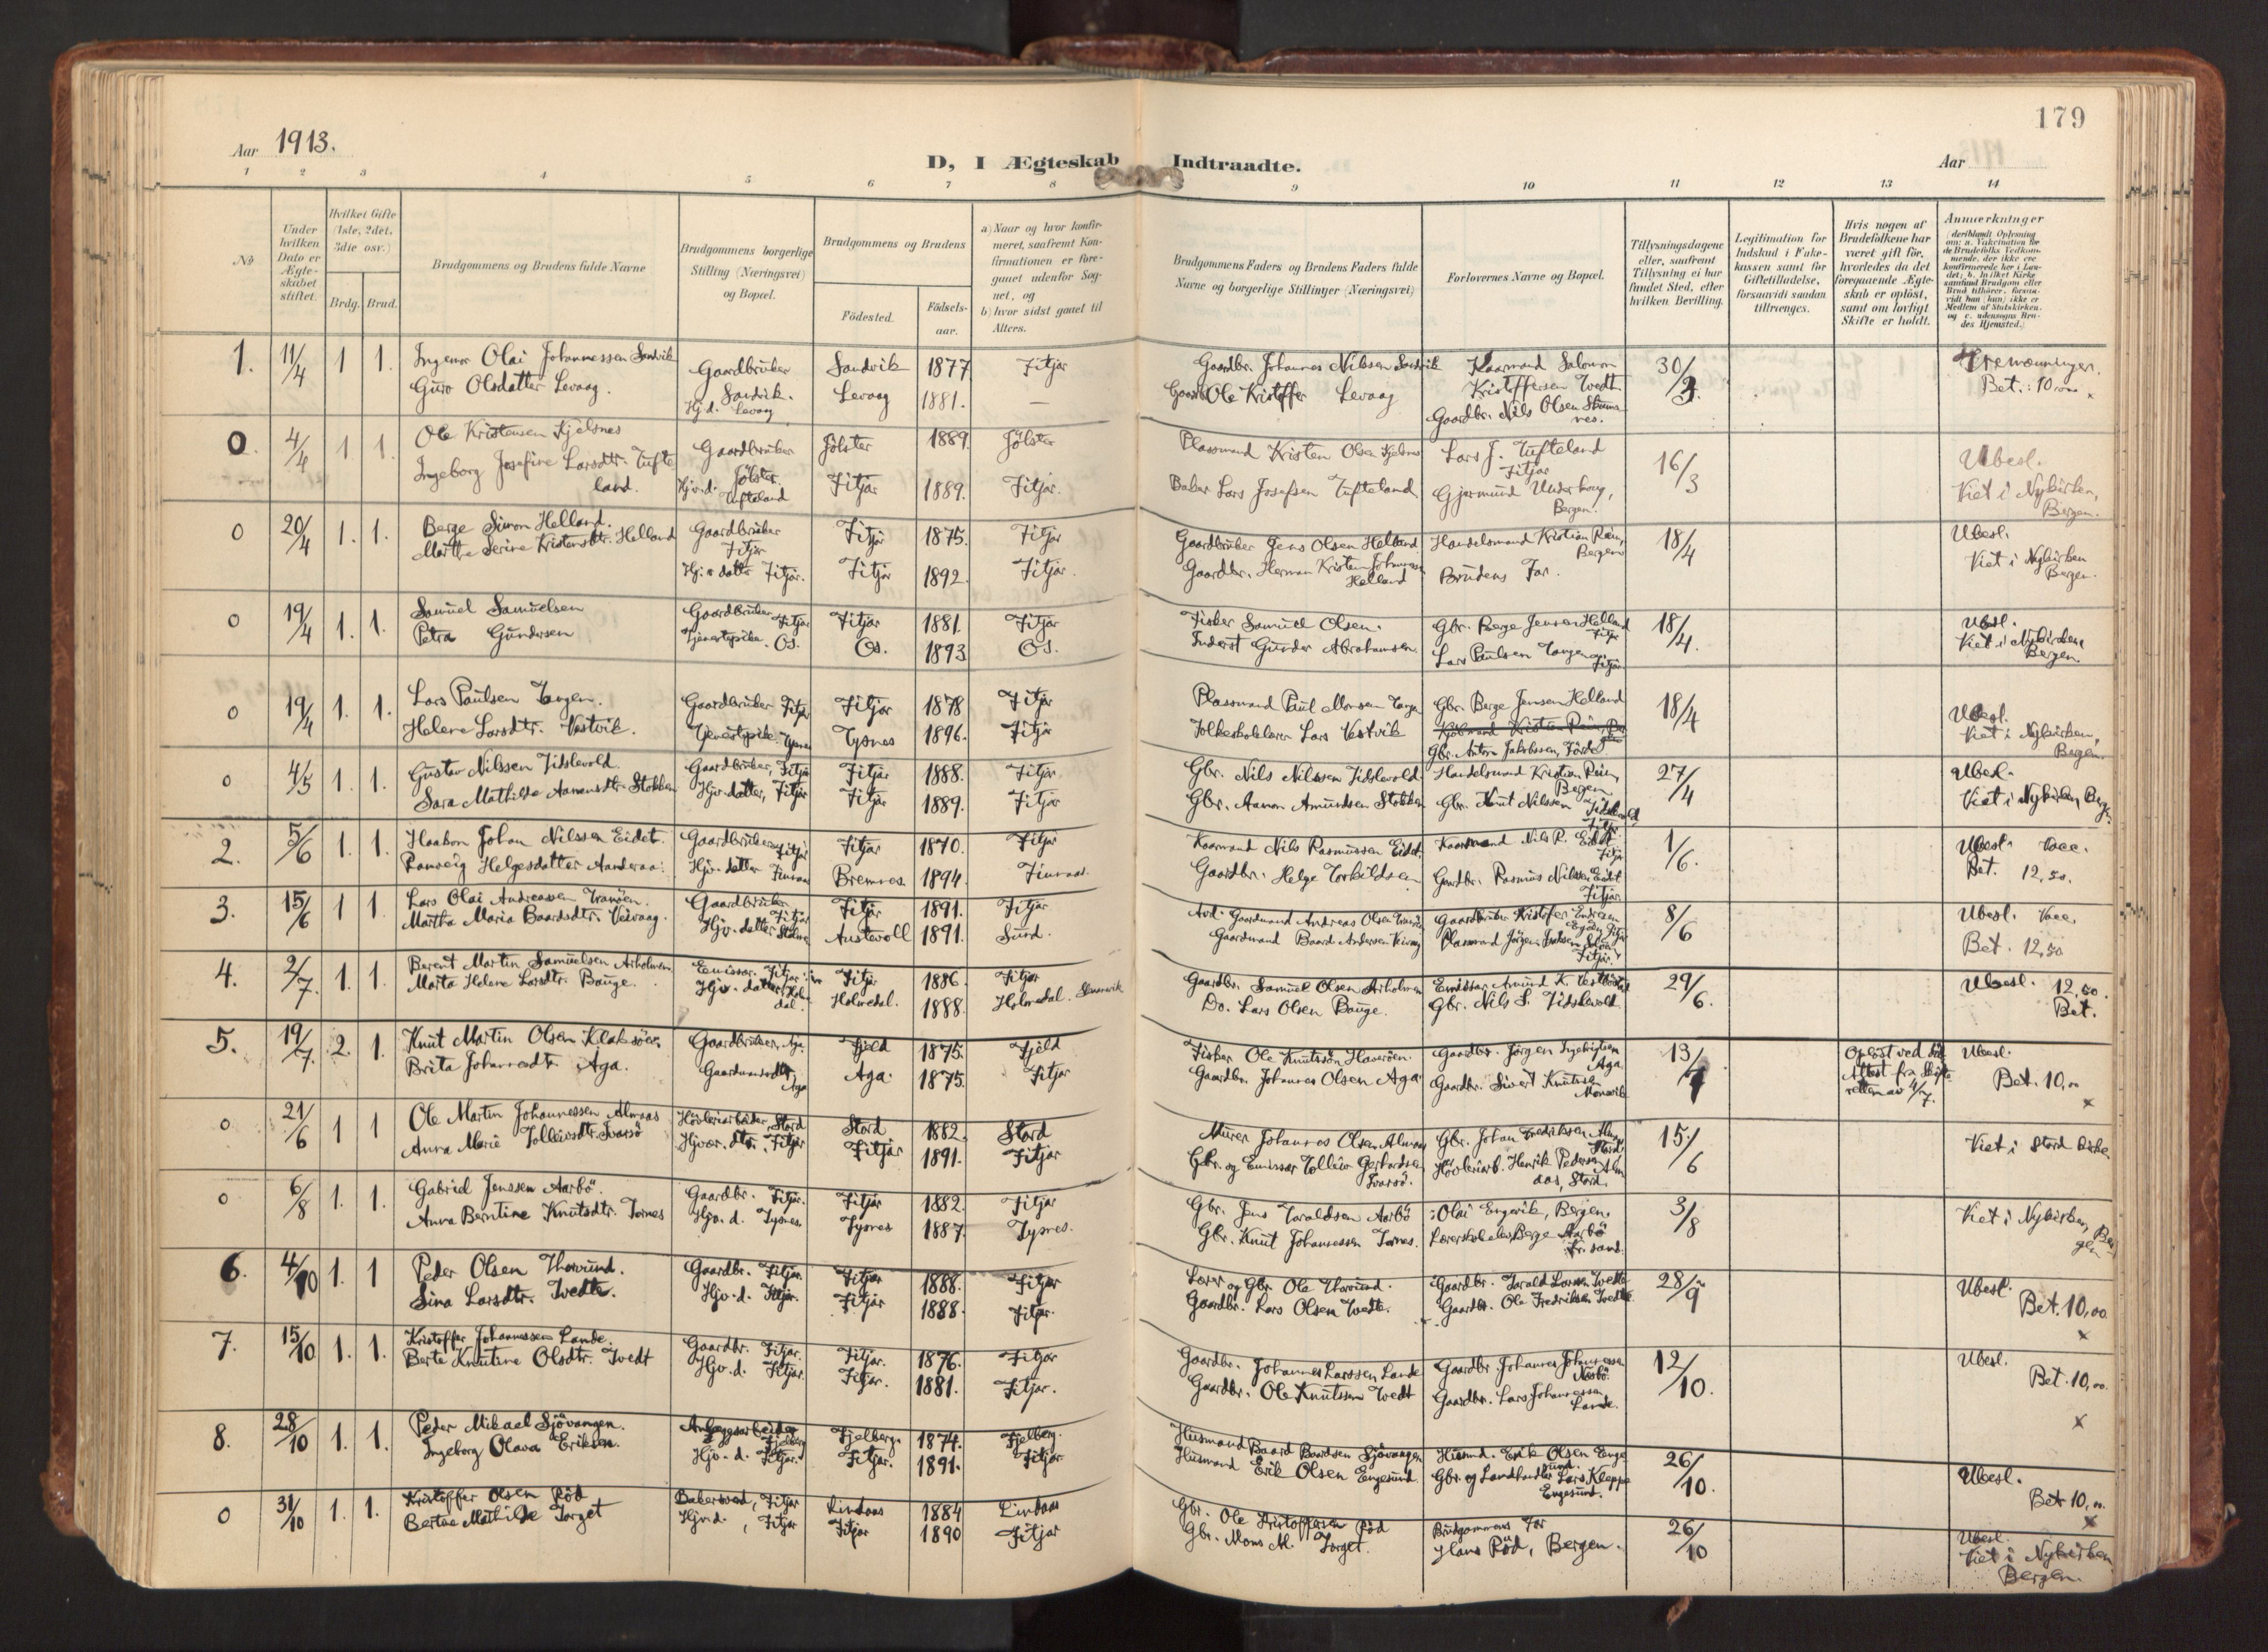 179
Aar 1913.
D, I Ægteskab Indtraadte.
Aar
1 2 3 4 5 6 7 8 9 10 11 12 13 14
№
Under hvilken Dato er Ægteskabet stiftet.
Hvilket Gifte (1ste, 2det, 3die osv.)
Brdg. Brud.
Brudgommens og Brudens fulde Navne
Brudgommens borgerlige Stilling (Næringsvei) og Bopæl.
Brudgommens og Brudens
Födested.
Födselsaar.
a) Naar og hvor konfirmeret, saafremt Konfirmationen er foregaaet udenfor Sognet, og
b) hvor sidst gaaet til Alters.
Brudgommens Faders og Brudens Faders fulde Navne og borgerlige Stillinger (Næringsvei)
Forlovernes Navne og Bopæl.
Tillysningsdagene eller, saafremt Tillysning ei har fundet Sted, efter hvilken Bevilling.
Legitimation for Indskud i Enkekassen samt for Giftetilladelse, forsaavidt saadan tiltrænges.
Hvis nogen af Brudefolkene har været gift för, hvorledes da det foregaaende Ægteskab er oplöst, samt om lovligt Skifte er holdt.
Anmærkninger
1. 11/4 1 1. Ingemar Olai Johannessen Sandvik Gaardbruker Sandvik. Sandvik 1877 Fitjar Gaardbr. Johannes Nilssen Sandvik Kaarmand Salomon Kristoffersen Tvedt. 30/3
Guro Olsdatter Levaag. Hj.d. Levaag Levaag 1881. — Ole Kristoffer Levaag Gaardbr. Nils Olsen Bet.: 10
0. 4/4 1 1. Ole Kristensen Kjelsnes Gaardbruker Jölster Jölster 1889. Jölster Plassmand Kristen Olsen Kjelsnes Lars J. Tufteland Fitjar 16/3 Ubesl.
Ingeborg Josefine Larsdtr. Tufteland. Hjv.d. Tufteland Fitjar 1889. Fitjar. Baker Lars Josefsen Tufteland. Gjermund Underhaug, Bergen. Viet i Nykirken, Bergen.
0 20/4 1. 1. Berge Simon Helland. Gaardbruker Fitjar Fitjar 1875. Fitjar Gaardbruker Jens Olsen Helland Handelsmand Kristian Röen, Bergen 18/4 Ubesl.
Marthe Serine Kristensdtr. Helland Hj.v. datter Fitjar. Fitjar 1892. Fitjar. Gaardbr. Herman Kristen Johannessen Helland Brudens Far. Viet i Nykirken Bergen.
0 19/4 1. 1. Samuel Samuelsen Gaardbruker Fitjar Fitjar 1881. Fitjar Fisker Samuel Olsen. Gbr. Berge Jensen Helland Fitjar 18/4. Ubesl.
Petra Gundersen Tjenestepike. Os. Os. 1893 Os. Inderst Gunder Abrahamsen. Lars Paulsen Tangen Fitjar. Viet i Nykirken Bergen.
0 19/4 1. 1. Lars Paulsen Tangen. Gaardbruker Fitjar Fitjar 1878 Fitjar Plassmand Paul Monsen Tangen Gbr. Berge Jensen Helland 18/4 Ubesl.
Helene Larsdtr. Vestvik. Tjenestepike. Tysnes Tysnes 1896. Fitjar Folkeskolelærer Lars Vestvik Gbr. Anton Jakobssen, Förde Viet i Nykirken, Bergen.
0 4/5 1. 1. Gustav Nilssen Tidslevold. Gaardbruker, Fitjar Fitjar 1888. Fitjar Gbr. Nils Nilssen Tidslevold. Handelsmand Kristian Röen, Bergen 27/4 Ubesl.
Sara Mathilde Aamensdtr. Stokken Hjv. datter, Fitjar Fitjar 1889. Fitjar Gbr. Aamon Amundsen Stokken Gbr. Knut Nilssen Tidslevold, Fitjar. Viet i Nykirken, Bergen.
2. 5/6 1. 1. Haakon Johan Nilssen Eidet. Gaardbruker, Fitjar Fitjar 1870. Fitjar Kaarmand Nils Rasmussen Eidet. Kaarmand Nils R. Eidet Fitjar 1/6. Ubesl. Vacc.
Ranveig Helgesdatter Aanderaa. Hjv. datter Finnaas Bremnes. 1894. Finnaas. Gaardbr. Helge Torkildsen Gaardbr. Rasmus Nilssen Eidet Fitjar. Bet. 12,50.
3. 15/6 1 1. Lars Olai Andreassen Tranöen. Gaardbruker Fitjar Fitjar 1891. Fitjar Avd. Gaardmand Andreas Olsen Tranö Gaardbruker Kristofer Endresen Fitjar 8/6 Ubesl. Vacc.
Martha Maria Baardsdtr. Veivaag. Hjv. datter Austevoll 1891. Sund. Gaardmand Baard Andersen Veivaag Plassmand Jörgen Fitjar. Bet. 12,50
4. 2/7. 1. 1. Berent Martin Samuelsen Arholmen. Emissær. Fitjar Fitjar 1886. Fitjar Gaardbr. Samuel Olsen Arholmen Emissær Amund K. 29/6. Ubesl. 12,50.
Marta Helene Larsdtr. Bauge. Hjv. datter Holmedal Holmedal. 1888. Holmedal. Do. Lars Olsen Bauge. Gbr. Nils S. Tidslevold. Bet.
5. 19/7. 2. 1. Knut Martin Olsen Klaksöen. Gaardbruker, Aga Fjeld 1875. Fjeld Fisker Ole Knutssön Haveröen. Gaardbr. Jörgen Ingebrigtsen Aga. 13/7 Ubesl.
Brita Johannesdtr. Aga. Gaardmandsdtr, Aga Aga. 1875. Fitjar Gaardbr. Johannes Olsen Aga Gaardbr. Sivert Knutssen Bet. 10,00
Oplöst ved död. Attest fra Skifteretten av 4/7.
0 21/6 1 1 Ole Martin Johannessen Almaas Hövleriarbeider, Stord Stord 1882. Stord Murer Johannes Olsen Almaas Gbr. Johan Fredriksen Almaas Stord. 15/6 Viet i Stord kirke.
Anna Marie Tolleivsdtr. Ivarsö Hjv. dtr. Fitjar Fitjar 1891. Fitjar Gbr. og Emissær Tolleiv Gerhardsen Ivarsö. Hövleriarb. Henrik Pedersen Almaas, Stord.
0 6/8 1. 1. Gabriel Jenssen Aarbö. Gaardbr. Fitjar. Fitjar 1882. Fitjar Gbr. Jens Taraldsen Aarbö Olai Engevik, Bergen. 3/8 Viet i Nykirken, Bergen
Anna Berntine Knutsdtr. Tornes Hjv. d. Tysnes. Tysnes 1887. Tysnes. Gbr. Knut Johannessen Tornes. Lærerskoleelev Berge Aarbö Kr.sand.
6. 4/10 1. 1 Peder Olsen Thorsund. Gaardbr. Fitjar. Fitjar 1888. Fitjar Lærer og Gbr. Ole Thorsund. Gaardbr. Tarald Larsen Tvedte 28/9 Ubesl.
Sina Larsdtr. Tvedte. Hjv. d. Fitjar. Fitjar 1888. Fitjar. Gaardbr. Lars Olsen Tvedte. Gaardbr. Ole Fredriksen Tvedte Bet. 10,00
7. 15/10 1. 1. Kristoffer Johannessen Lande. Gaardbr. Fitjar. Fitjar. 1876. Fitjar Gaardbr. Johannes Larssen Lande Gaardbr. Johannes Johannessen Næsbö. 12/10. Ubesl.
Berte Knutine Olsdtr. Tvedt Hjv. d. Fitjar Fitjar. 1881. Fitjar. Gaardbr. Ole Knutssen Tvedt Gaardbr. Lars Johannessen Lande. Bet. 10,00.
8. 28/10 1. 1. Peder Mikael Sjövangen. Anlægsarbeider Fjelberg Fjelberg. 1874. Fjelberg. Husmand Baard Baardsen Sjövangen Husmd. Erik Olsen Engesund. 26/10. Ubesl.
Ingeborg Olava Eriksen. Hjv. d. Fitjar. Fitjar. 1891. Fitjar Husmand Erik Olsen Engesund. Gbr. og Landhandler Lars Kleppe Engesund. Bet 10,00
0 31/10 1. 1. Kristoffer Olsen Röd Bakersvend, Fitjar Lindaas 1884 Lindaas Gbr. Ole Kristoffersen Röd Brudgommens Far 26/10 Ubesl.
Bertine Mathilde Torget Hjv.d., Fitjar Fitjar 1890 Fitjar Gbr. Mons M. Torget. Hans Röd, Bergen. Viet i Nykirken Bergen.